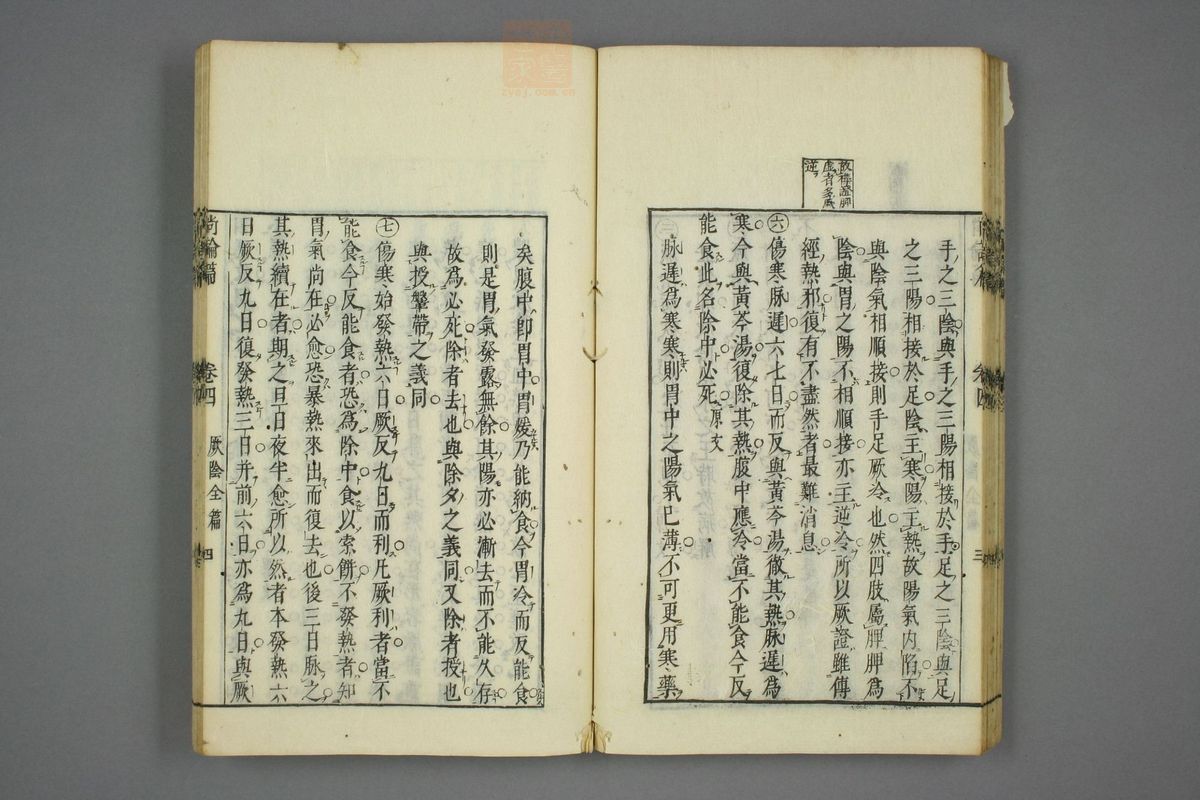 故禅證脾
虚者多感
逆
手之三陰與手之三陽相接於手足之三陰與足
之三陽相接於足陰主寒陽主熱故陽氣内陷不
與陰氣相順接則手足厥冷也然四肢屬脾脾爲
陰與胃之陽不相順接亦主逆冷所以厥證雖傳
經熱邪復有不盡然者最難消息
六傷寒脉遲六七日而反與黃芩湯徹其熱脉遲爲
寒今與黃芩湯復除其熱腹中應冷當不能食今反
能食此名除中必死原文
脉遲爲寒寒則胃中之陽氣已薄不可更用寒藥
三
矣腹中卽胃中胃煖乃能納食今胃冷而反能食
則是胃氣發露無餘其陽亦必漸去而不能久存
故爲必死除者去也與除夕之義同又除者授也
與授鞶帶之義同
七傷寒始發熱六日厥反九日而利凡厥利者當不
能食今反能食者恐爲除中食以索餅不發熱者知
胃氣尚在必愈恐暴熱來出而復去也後三日脉之
其熱續在者期之旦日夜半愈所以然者本發熱六
日厥反九日復發熱三日并前六日亦爲九日與厥
尚論篇
卷四
厥陰全篇
四
zyoj.com.cn